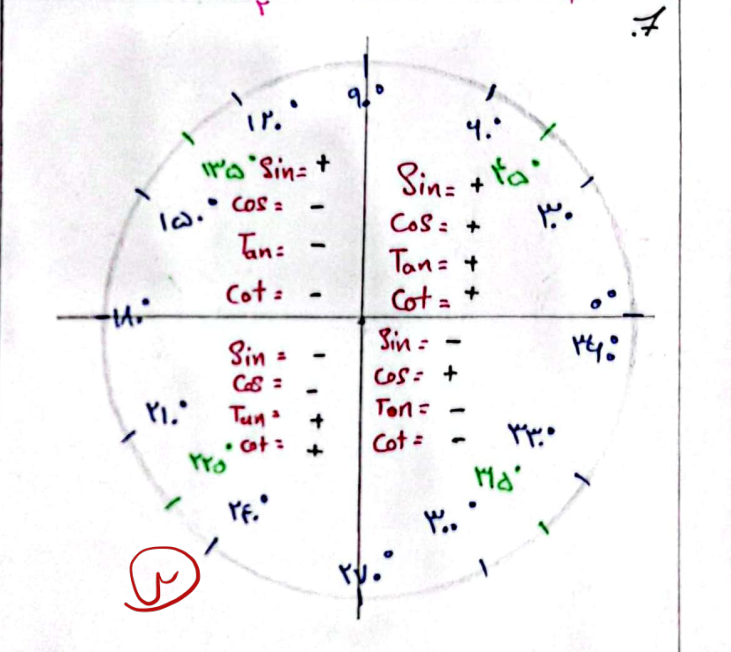 .7
۹۰°
۱۲۰°
۶۰°
۱۳۵°
۴۵°
Sin= +
Cos= -
Tan= -
Cot= -
Sin= +
Cos= +
Tan= +
Cot= +
۱۵۰°
۳۰
۱۸۰°
۰°
۳۶۰°
Sin= -
Cos= -
Tan= +
Cot= +
Sin= -
Cos= +
Tan= -
Cot= -
۲۱۰°
۳۳۰°
۲۲۵°
۳۱۵°
۲۴۰°
۳۰۰°
۲۷۰°